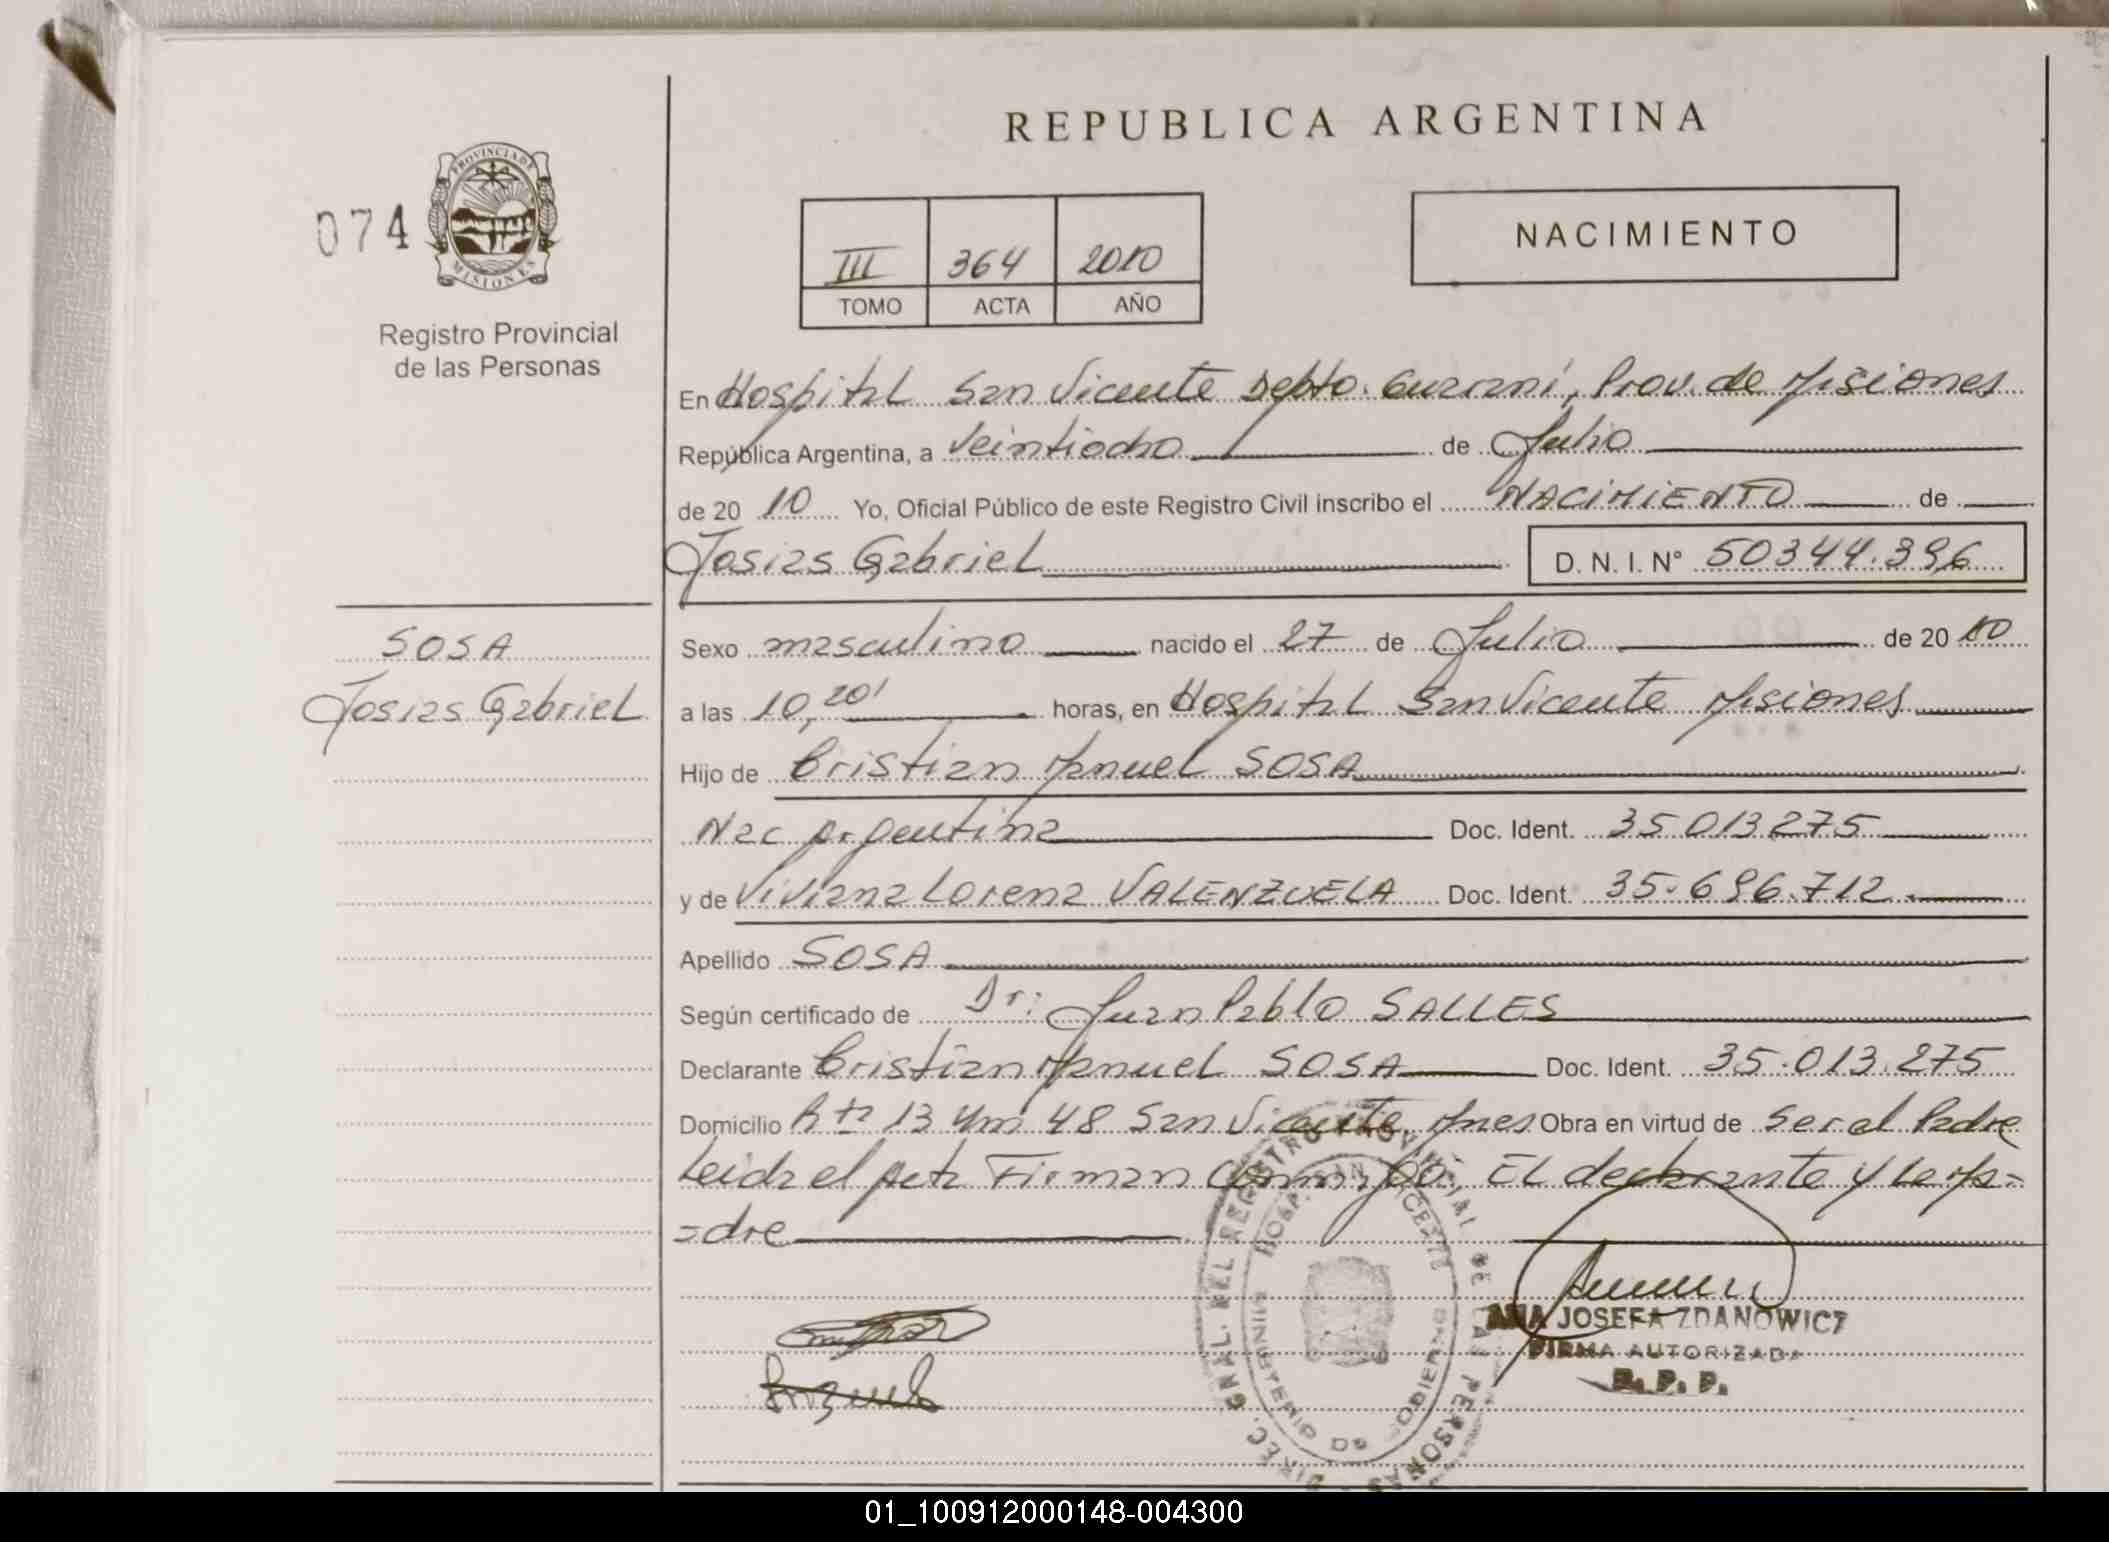 REPUBLICA ARGENTINA
074
PROVINCIA DE
MISIONES
Registro Provincial
de las Personas
III 364 2010
TOMO ACTA AÑO
NACIMIENTO
En Hospital San Vicente Depto. Guaraní, Prov. de Misiones
República Argentina, a Veintiocho de Julio
de 20 10 Yo, Oficial Público de este Registro Civil inscribo el NACIMIENTO de
Josias Gabriel D. N. I. N° 50344.396
SOSA
Josias Gabriel
Sexo masculino nacido el 27 de Julio de 20 10
a las 10,20' horas, en Hospital San Vicente Misiones
Hijo de Cristian Manuel SOSA
Nac Argentina Doc. Ident. 35.013275
y de Viviana Lorena VALENZUELA Doc. Ident. 35.696.712
Apellido SOSA
Según certificado de Dr: Juan Pablo SALLES
Declarante Cristian Manuel SOSA Doc. Ident. 35.013.275
Domicilio Rta 13 Km 48 San Vicente, Mnes Obra en virtud de Ser el Padre
Leida el Acta Firman Conmigo; EL declarante y la Ma=
=dre
DIREC. GNAL. DEL REGISTRO PROVINCIAL DE LAS PERSONAS
HOSP. SAN VICENTE
MINISTERIO DE GOBIERNO
ANA JOSEFA ZDANOWICZ
FIRMA AUTORIZADA
R. P. P.
01_100912000148-004300